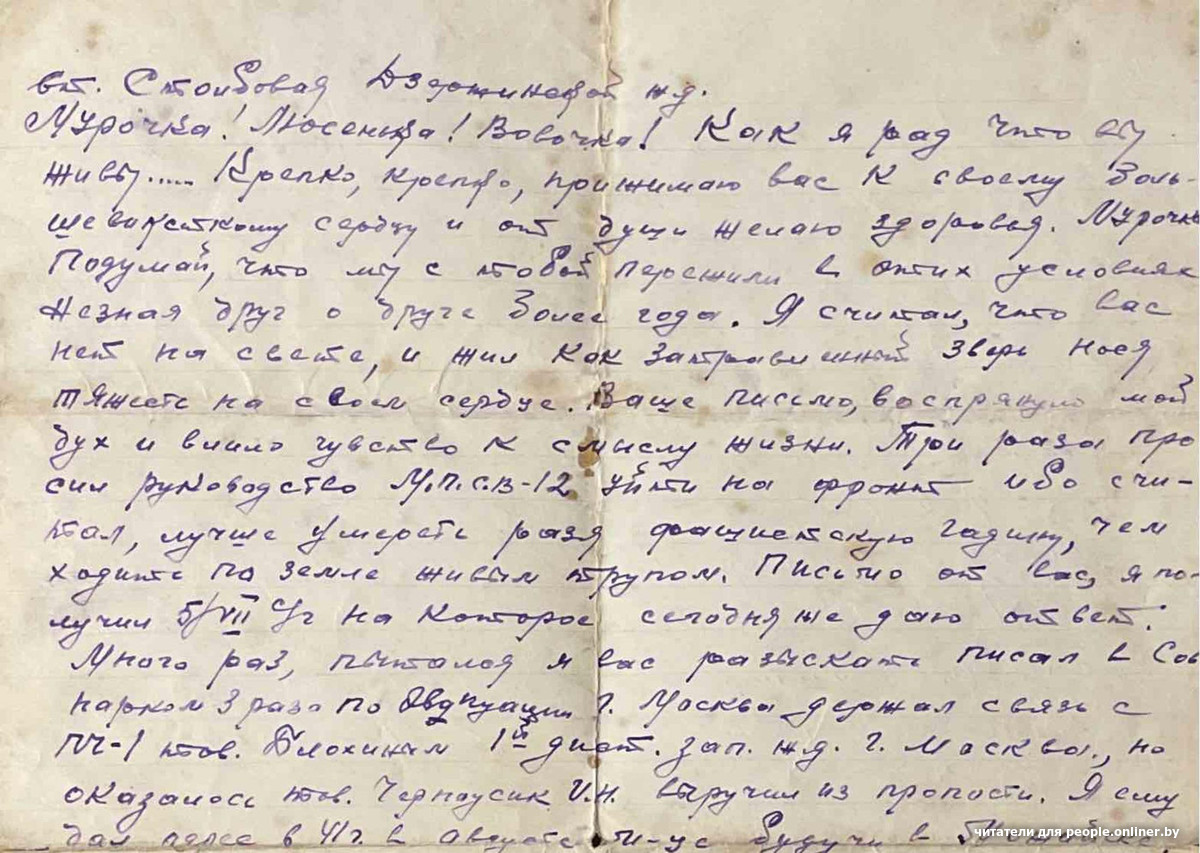 ст. Столбовая Дзержинской ж.д.
Мурочка! Люсенька! Вовочка! Как я рад что вы
живы..... Крепко, крепко, прижимаю вас к своему боль-
шевисткому сердцу и от души желаю здоровья. Мурочка
Подумай, что мы с тобой пережили в этих условиях
Незная друг о друге более года. Я считал, что вас
нет на свете, и жил как затравленный зверь нося
тяжесть на своем сердце. Ваше письмо, воспрянуло мой
дух и влило чувство к смыслу жизни. Три раза про
сил руководство М.П.С.В-12 уйти на фронт ибо счи-
тал, лучше умереть разя фашистскую гадину, чем
ходить по земле живым трупом. Письмо от вас, я по-
лучил 5/VII с/г на которое сегодня же даю ответ.
Много раз, пытался я вас разыскать писал в Сов
нарком 3 раза по г. Москвы держал связь с
ПЧ-1 тов. Блохиным 1й дист. зап. ж.д. г. Москвы., но
оказалось тов. Черноусик И.Н. выручил из пропасти. Я ему
дал адрес в 41г. в августе м-це будучи в
читатели для people.onliner.by